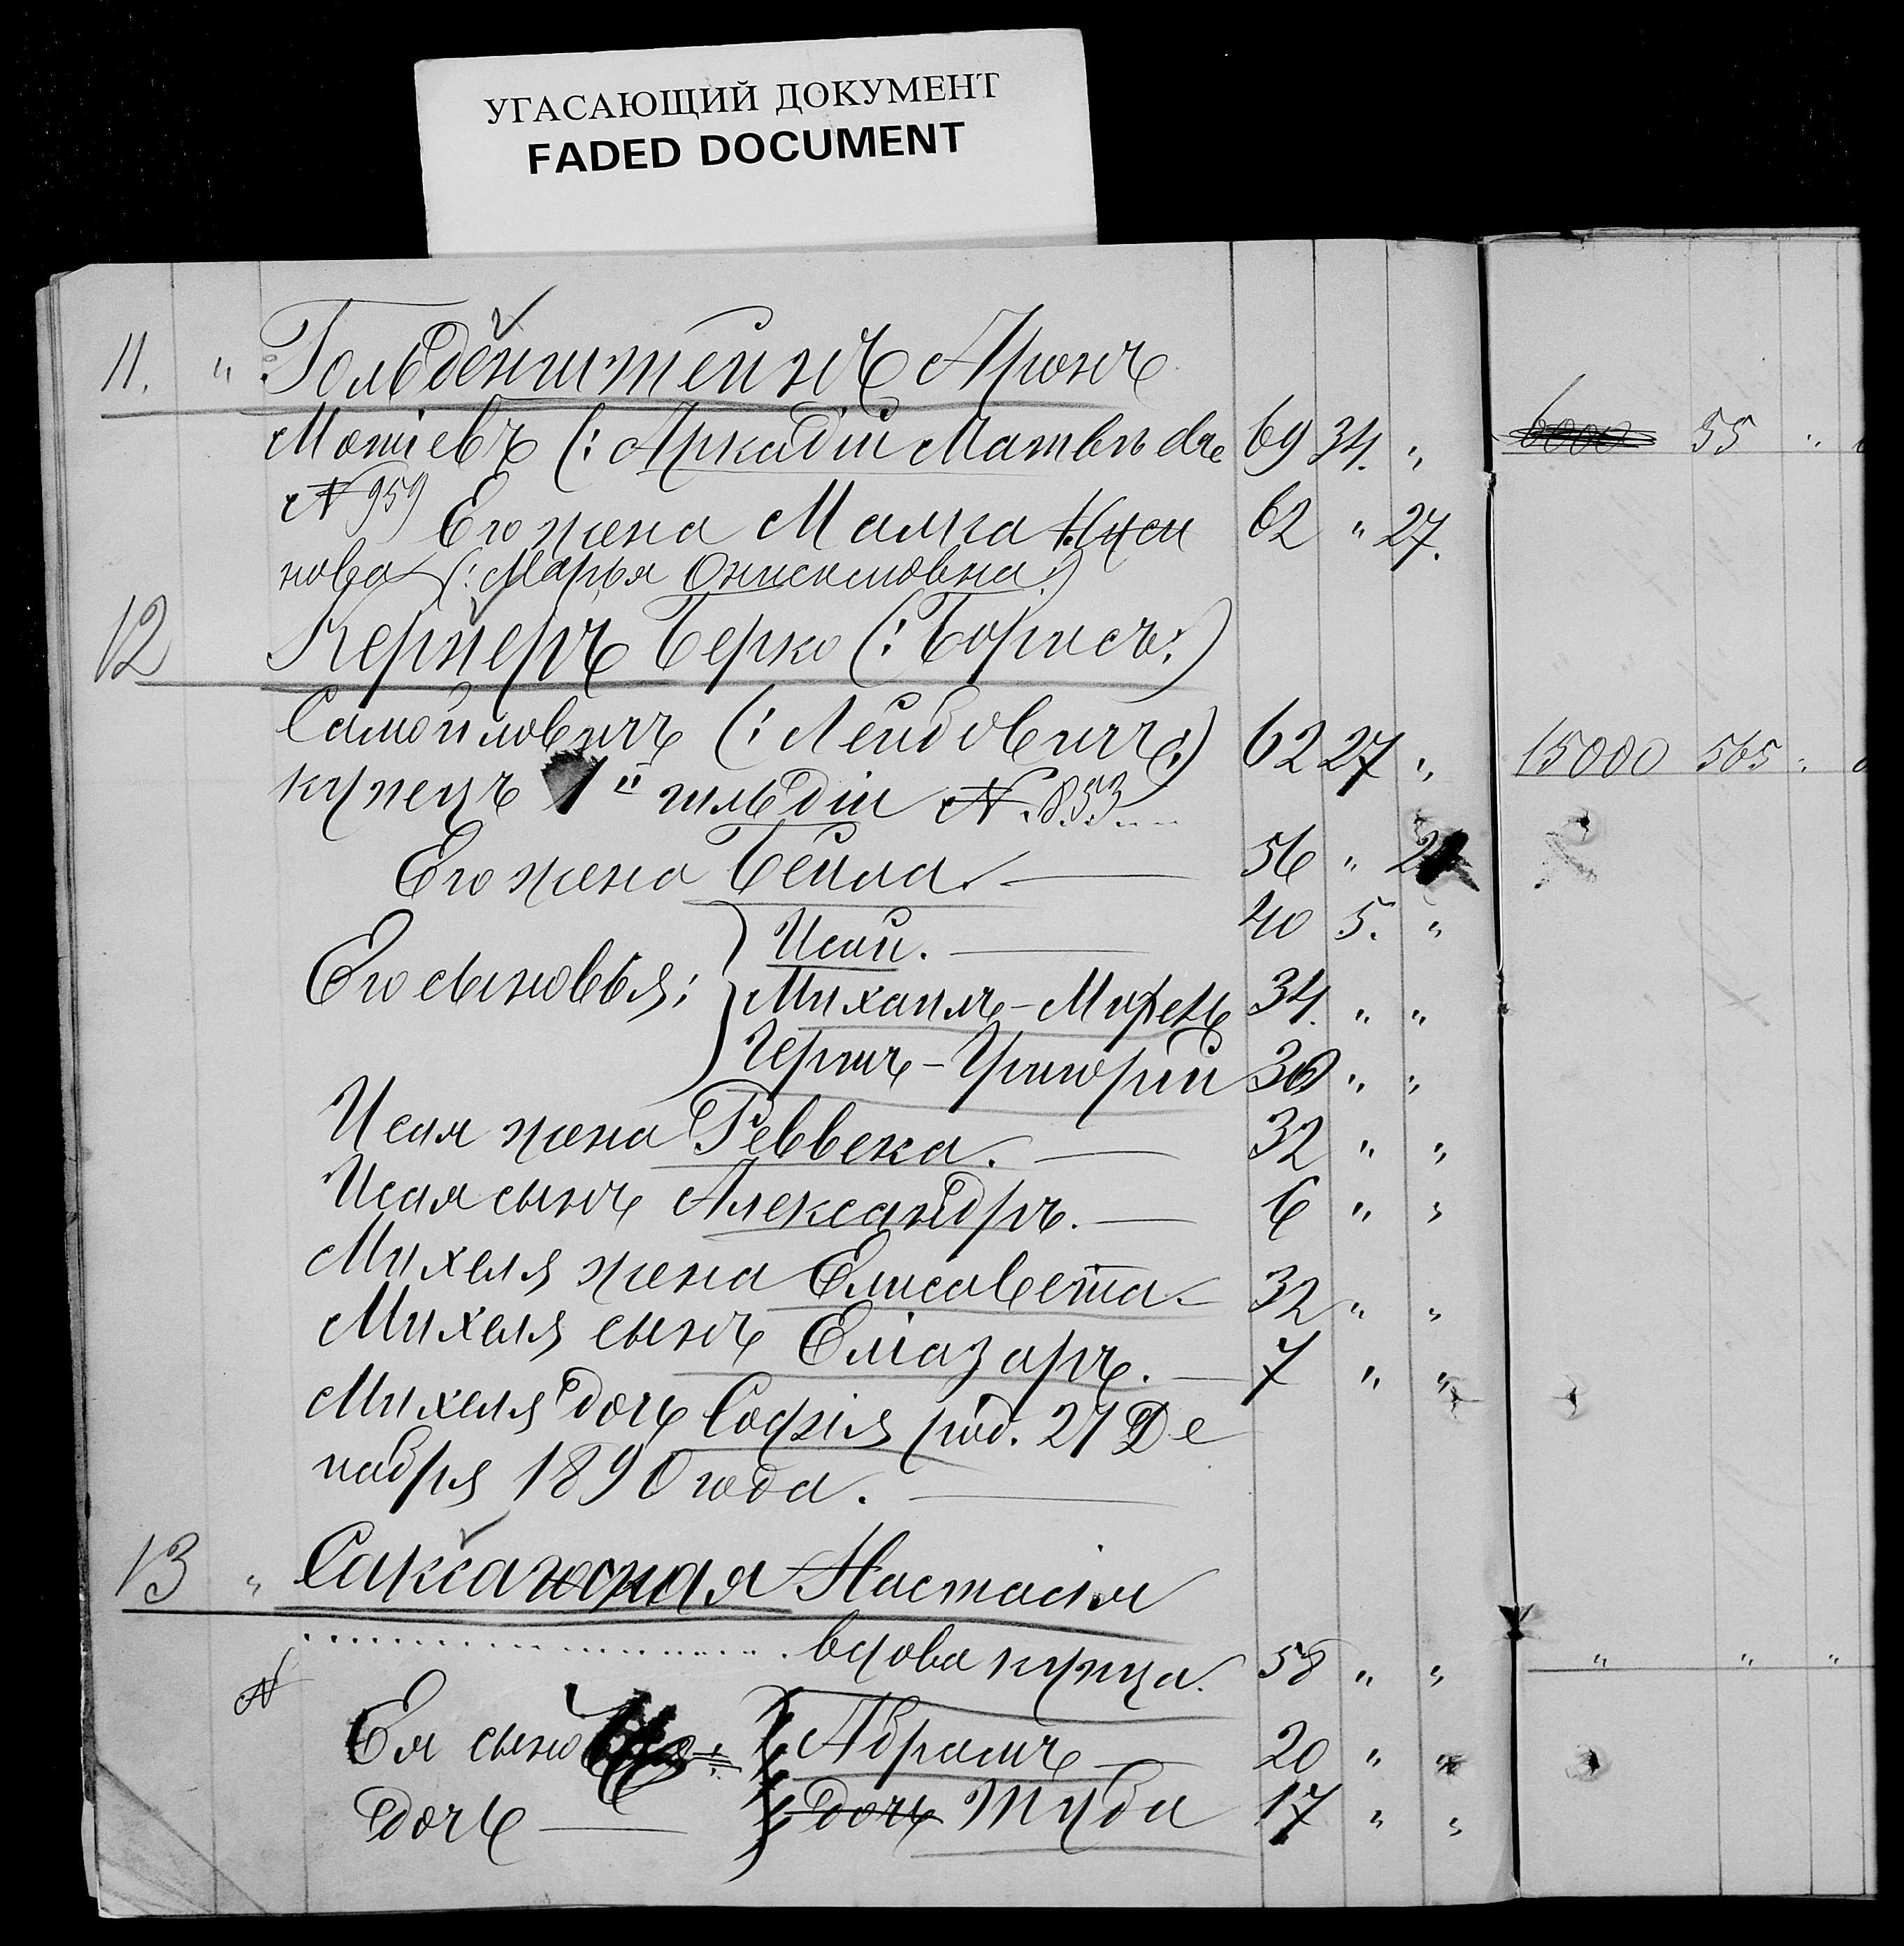 УГАСАЮЩИЙ ДОКУМЕНТ
FADED DOCUMENT
11. " Гольденштейнъ Аронъ
Мотіевъ (: Аркадій Матвѣевъ 69 34. " 6000 55 "
№ 959) Его жена Малка
нова (: Марья Онисимовна :) 62 " 27.
12 Кернеръ Берко (: Борисъ :)
Самойловичъ (: Лейбовичъ :) 62 27 " 15000 565 "
купецъ 1й гильдіи № 853
Его жена Бейла. — 56 " 21
Его сыновья: Исай. — 40 5. "
Михаилъ - 34. " "
Гершъ - Григорій 30 " "
Исая жена Реввека. — 32 " "
Исая сынъ Александръ. — 6 " "
Михеля жена Елисавета — 32 " "
Михеля сынъ Еліазаръ. — 7 " "
Михеля дочь Софія род. 27 Де
кабря 1890 года. —
13 " Саксаганская Настасія
вдова купца. 58 " " " " "
№
Ея сыно Абрамъ — 20 " "
дочь — дочь Туба 17 " "